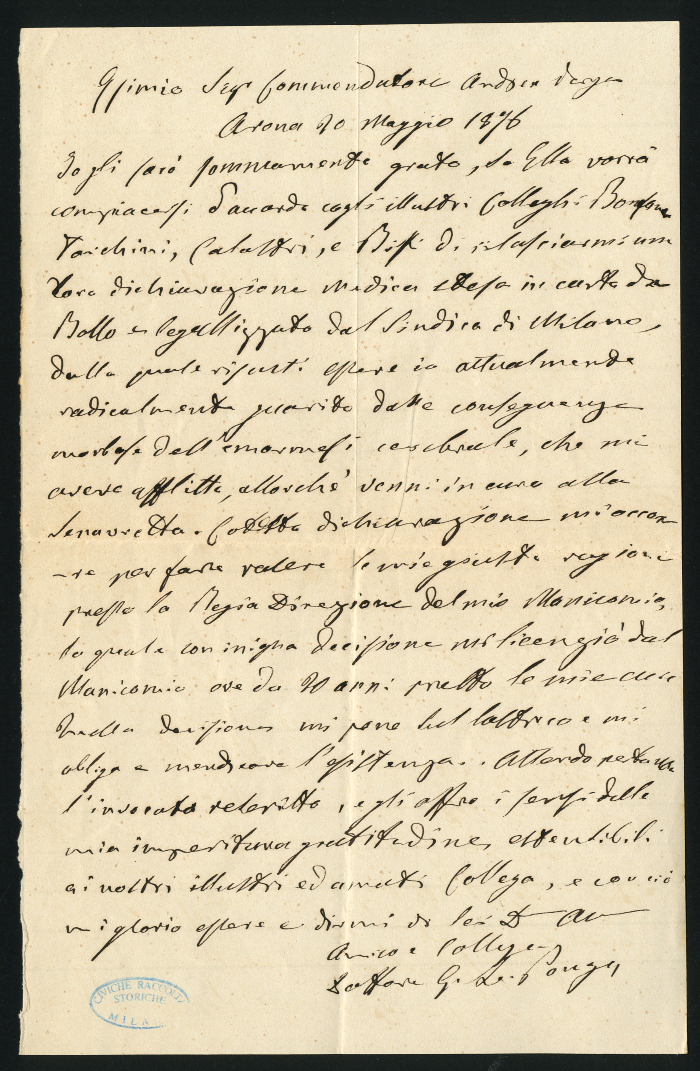 Esimio Sigr Commendatore Andrea Verga
Arona 20 Maggio 1876
Io gli sarò sommamente grato, se Ella vorrà
compiacersi d'accordo cogli illustri Colleghi
Tarchini, Calastri, e Biffi di rilasciarmi una
loro dichiarazione medica stesa in carta da
Bollo e legallizzata dal Sindico di Milano,
dalla quale risulti essere io attualmente
radicalmente guarito dalle conseguenze
morbose dell'emormesi cerebrale, che mi
aveva afflitto, allorché venni in cura alla
Senavretta. Codesta dichiarazione mi occor
-re per fare valere le mie giuste ragioni
presso la Regia Direzione del mio Manicomio,
la quale con iniqua decisione mi licenziò dal
Manicomio ove da 20 anni presto le mie cure
decisione mi pone sul lastrico e mi
obliga a mendicare l'esistenza. Attendo pertanto
l'invocato , e gli offro i sensi della
mia imperitura gratitudine, estensibili
ai nostri illustri ed amati Collega, e con ciò
mi glorio essere e dirmi di lei D
Amico e Collega
Dottore G.
CIVICHE RACCOLTE
STORICHE
MILANO